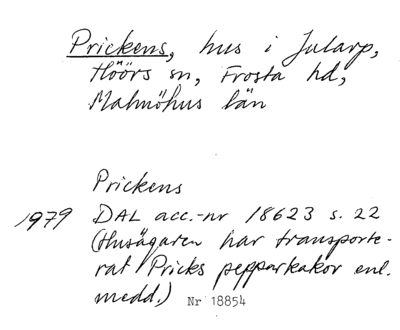 Prickens, hus i Jularp,
Höörs sn, Frosta hd,
Malmöhus län
Prickens
1979 DAL acc.-nr 18623 s. 22
(Husägaren har transporte-
rat Pricks pepparkakor enl.
medd.) Nr 18854